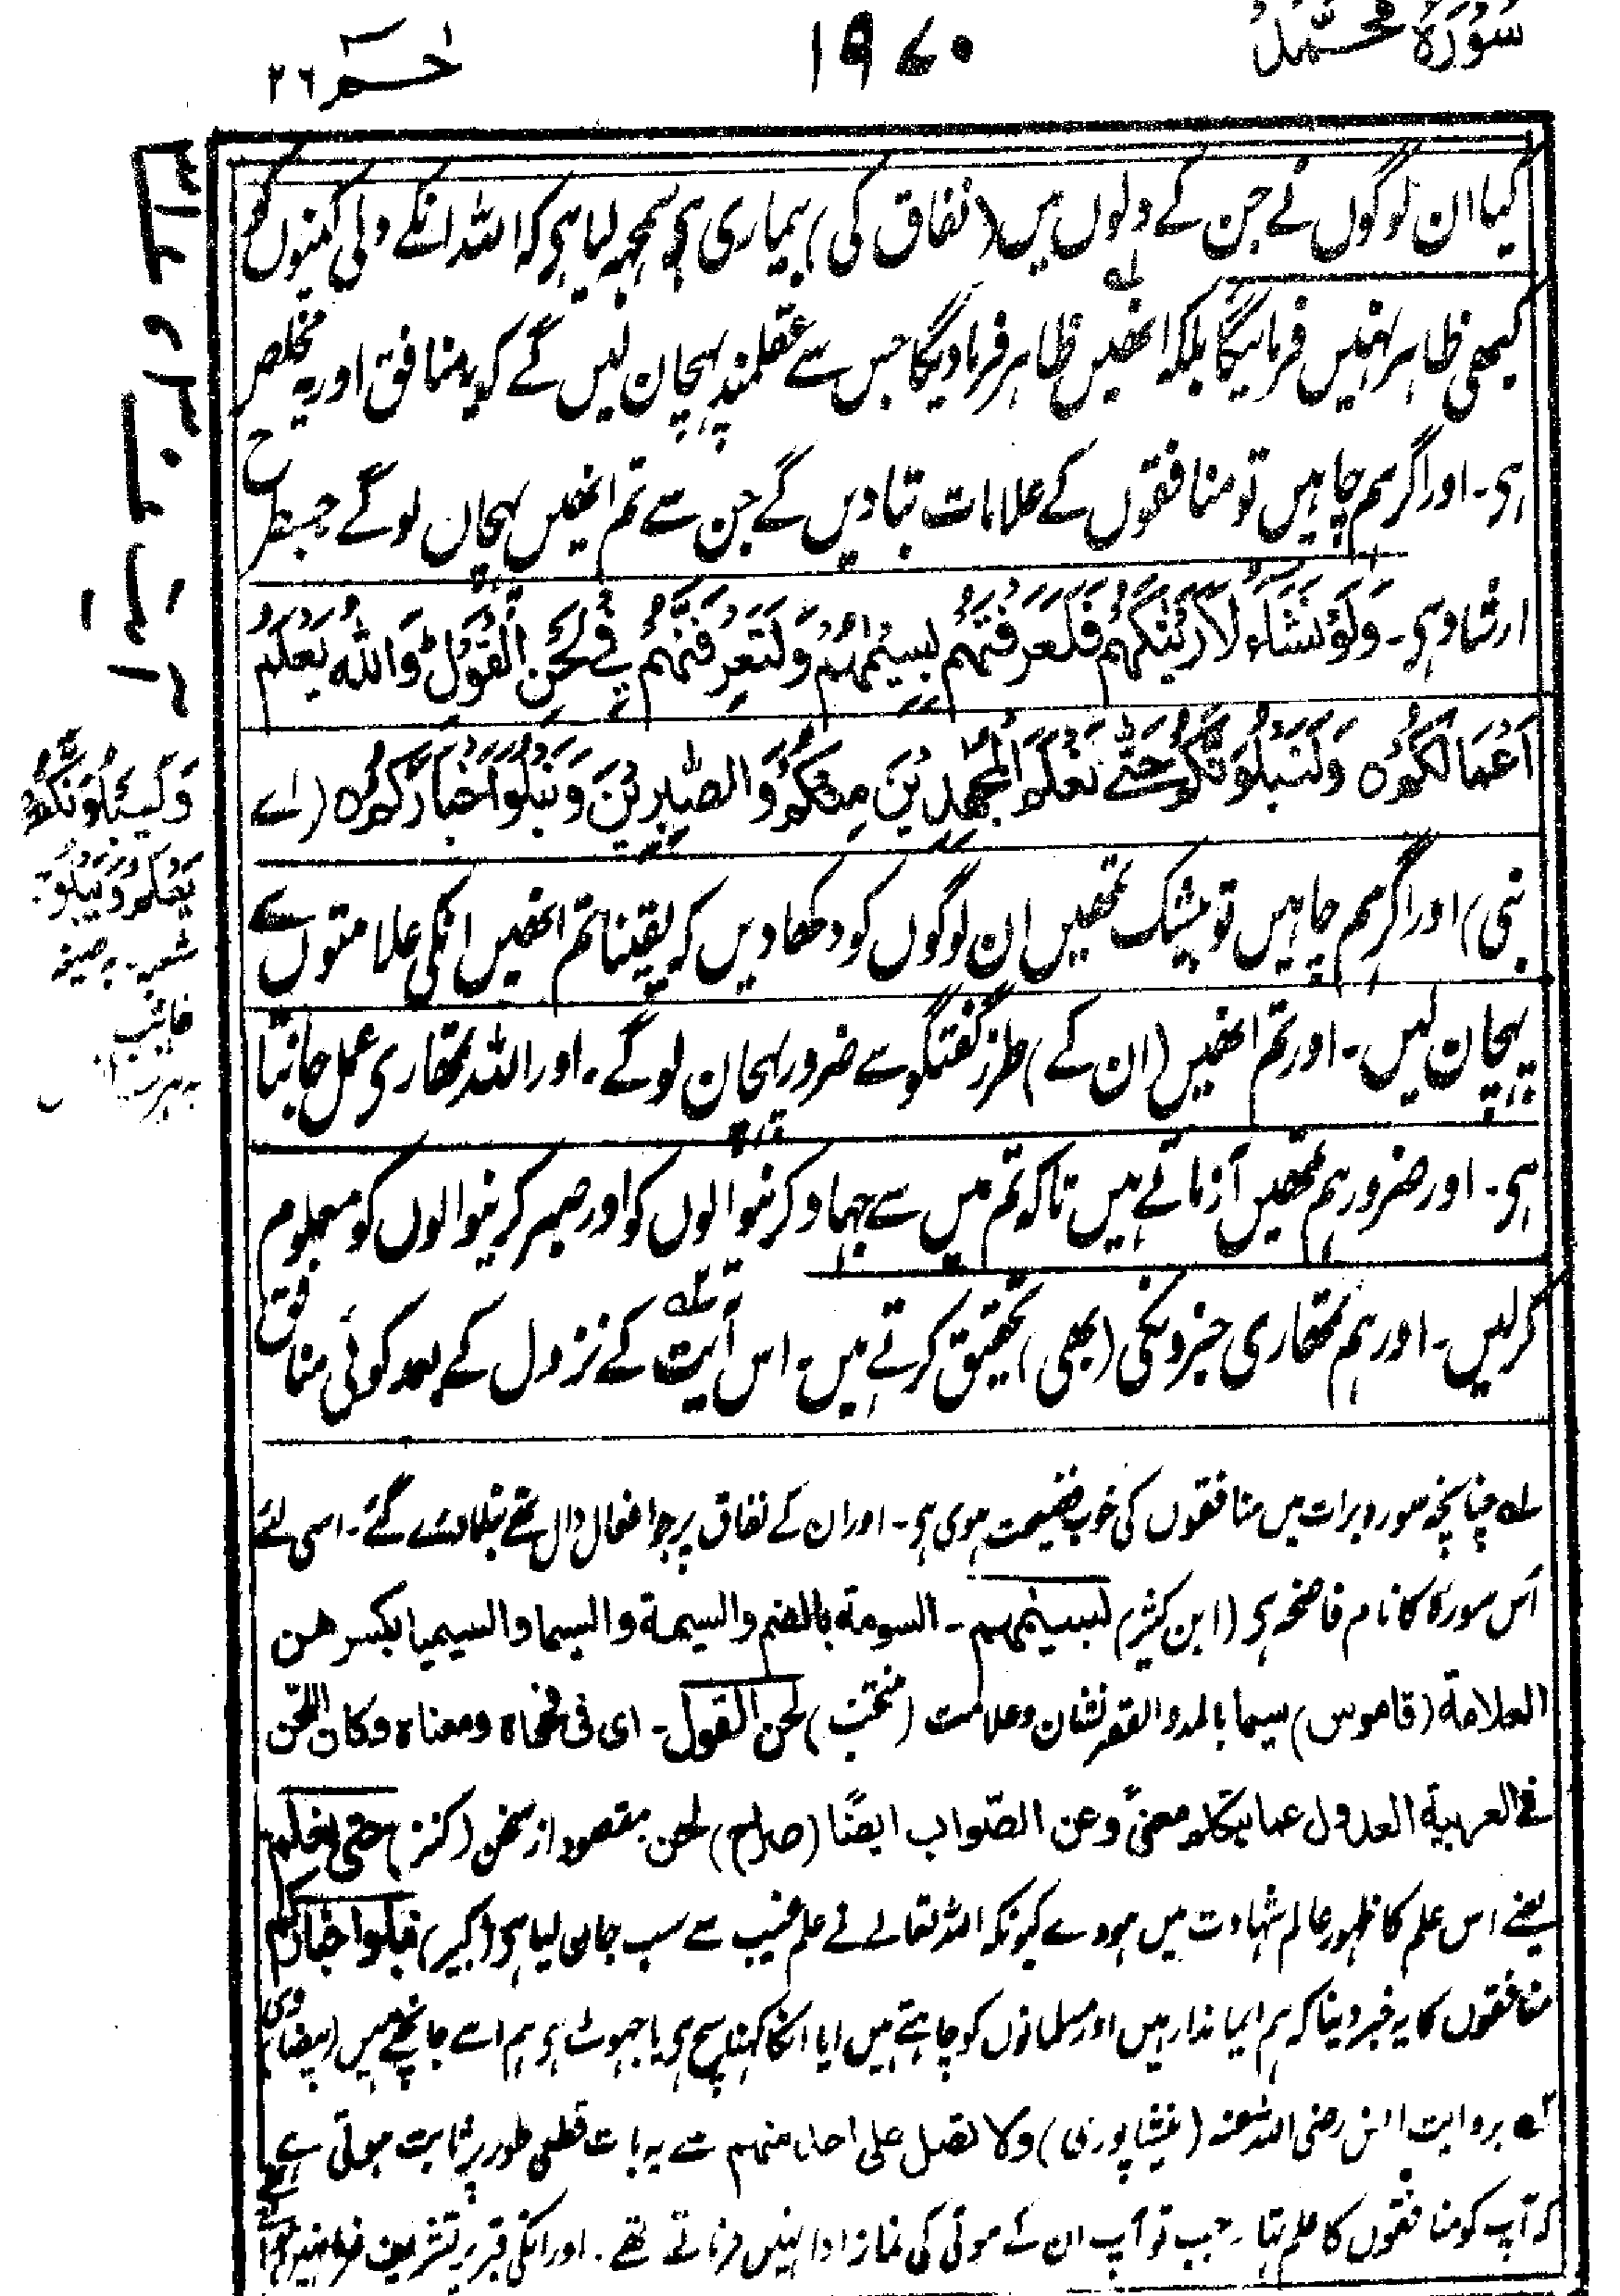 سُوْرَۃُ مُحَمَّدْ
١٩٧٠
حٰمٓ ٢٦
کیا ان لوگوں نے جن کے دلوں میں (نفاق کی) بیماری ہی سمجھ لیا ہی کہ اللہ انکے دلی کینوں کو
کبھی ظاہر نہیں فرمائیگا بلکہ انھیں ظاہر فرما دیگا جس سے عقلمند پہچان لیں گے کہ یہ منافق اور یہ مخلص
ہی۔ اور اگر ہم چاہیں تو منافقوں کے علامات بتا دیں گے جن سے تم انھیں پہچان لو گے جسطرح
ارشاد ہی۔ وَلَوْ نَشَآءُ لَاَرَیْنٰکَھُمْ فَلَعَرَفْتَھُمْ بِسِیْمٰھُمْ وَلَتَعْرِفَنَّھُمْ فِیْ لَحْنِ الْقَوْلِ وَاللّٰہُ یَعْلَمُ
اَعْمَالَکُمْ ہ وَلَنَبْلُوَنَّکُمْ حَتّٰی نَعْلَمَ الْمُجٰھِدِیْنَ مِنْکُمْ وَالصّٰبِرِیْنَ وَنَبْلُوَا اَخْبَارَکُمْ ہ (اے
نبی) اور اگر ہم چاہیں تو بیشک تمھیں ان لوگوں کو دکھا دیں کہ یقینا تم انھیں انکی علامتوں سے
پہچان لیں۔ اور تم انھیں (ان کے) طرز گفتگو سے ضرور پہچان لو گے۔ اور اللہ تمھاری عمل جانتا
ہی۔ اور ضرور ہم تمھیں آزماتے ہیں تاکہ تم میں سے جہاد کرنیوالوں کو اور صبر کرنیوالوں کو معلوم
کرلیں۔ اور ہم تمھاری خبرونکی (بھی) تحقیق کرتے ہیں۔ اس آیت کے نزول کے بعد کوئی منافق
وَلَیَبْلُوَنَّکُمْ
یَعْلَمَ وَیَبْلُوَ
شعبہ بہ صیغہ
غائب
لہ چنانچہ سورہ برات میں منافقوں کی خوب فضیحت ہوی ہی۔ اور ان کے نفاق پر جو افعال دال تھے بتلا دئے گئے۔ اسی لئے
اس سورۃ کا نام فاضحہ ہی (ابن کثیر) بسیمٰھم۔ السومۃ بالضم والسیمۃ والسیما والسیمیا بکسر ھن
العلامۃ (قاموس) سیما بالمد والقصر نشان وعلامت (منتخب) لحن القول۔ ای فی فحواہ ومعناہ وکان اللحن
فی العربیۃ العدول عما یتکلم معنیً وعن الصّواب ایضًا (صراح) لحن مقصود از سخن (کنز) حتی نعلم
یعنے اس علم کا ظہور عالم شہادت میں ہووے کیونکہ اللہ تعالے نے علم غیب سے سب جان لیا ہی (کبیر) نبلوا اخبارکم
منافقوں کا یہ خبر دینا کہ ہم ایماندار ہیں اور مسلمانوں کو چاہتے ہیں ایا انکا کہنا سچ ہی یا جھوٹ ہی ہم اسے جانچتے ہیں (بیضاوی)
لہ بروایت انس رضی اللہ عنہ (نیشاپوری) ولا تصل علی احد منھم سے یہ بات قطعی طور پر ثابت ہوتی ہے
کہ آپ کو منافقوں کا علم تہا۔ جب تو آپ ان کے موتی کی نماز ادا نہیں فرماتے تھے۔ اور انکی قبر پر تشریف